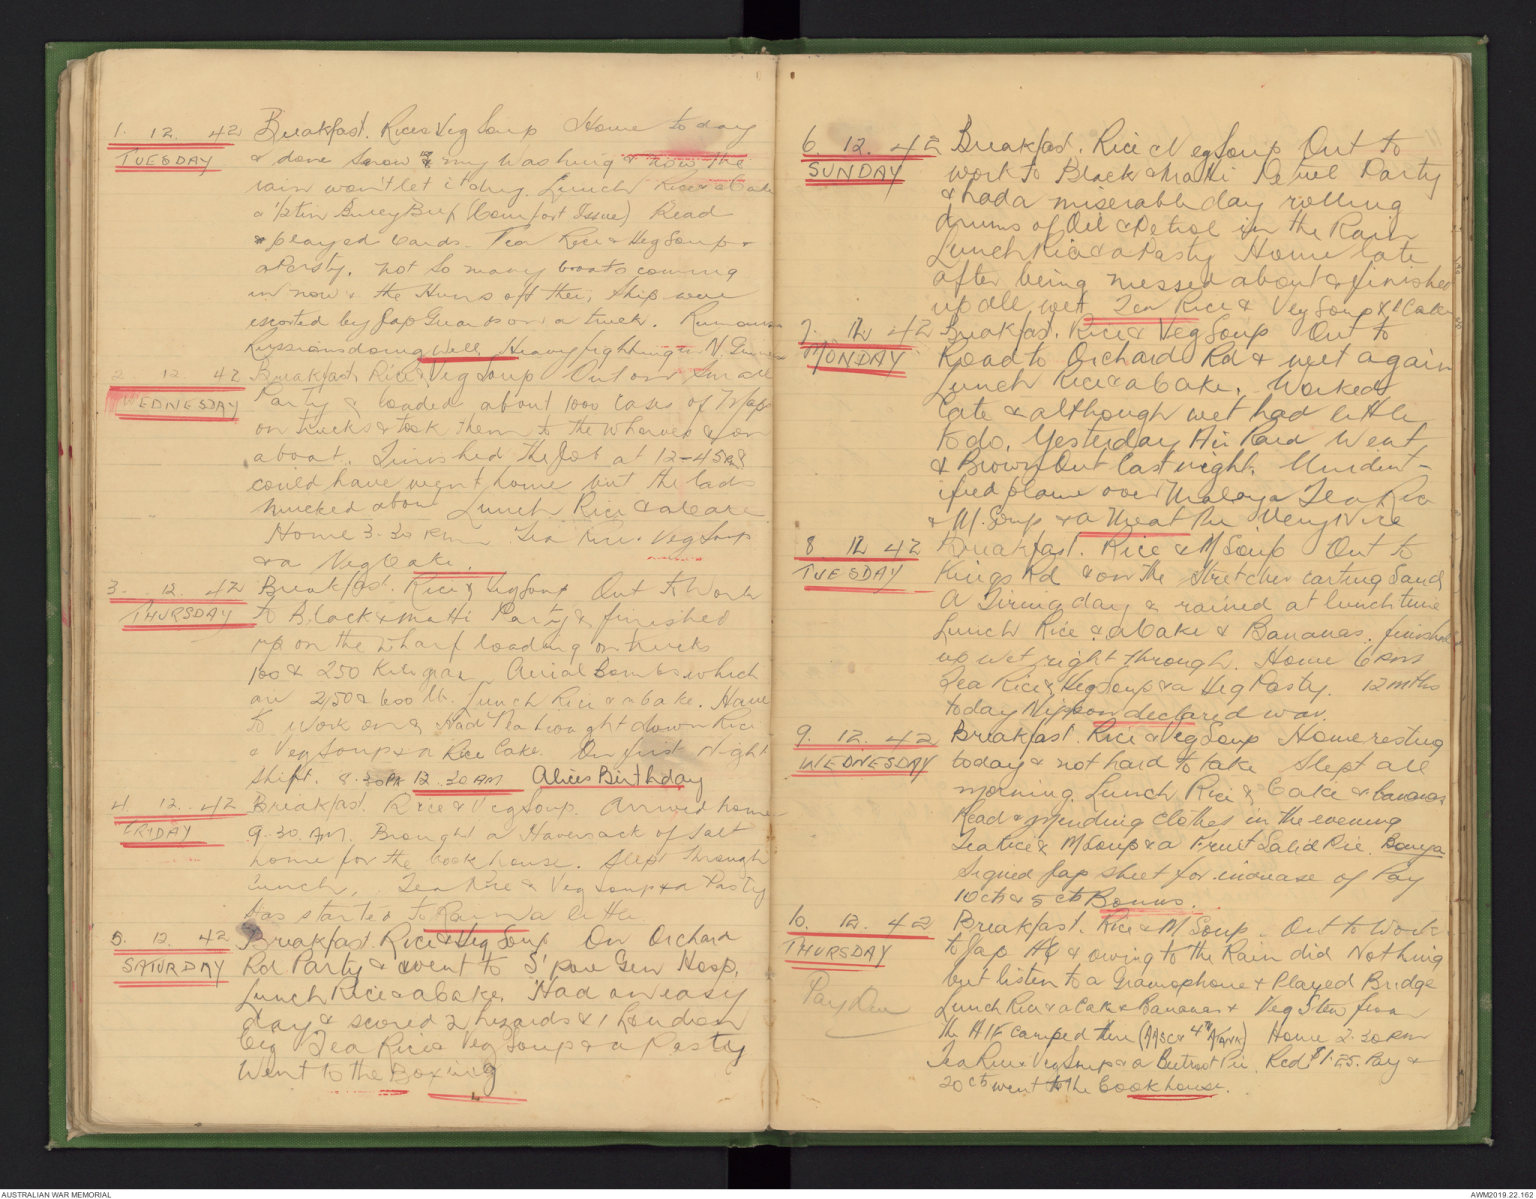 1. 12. 42 Breakfast. Rice & Veg Soup Home today
TUESDAY & done some of my Washing & now the
rain won't let it dry. Lunch Rice & a Cake
a ½ tin Bully Beef (Comfort Issue) Read
& played Cards. Tea Rice & Veg Soup &
a Pasty. Not so many boats coming
in now & the Huns off their ship were
escorted by Jap Guards on a truck. Rumours
Russians doing Well Heavy fighting in N. Guinea
2 12 42 Breakfast. Rice & Veg Soup Out on Small
WEDNESDAY Party & loaded about 1000 cases of Maps
on trucks & took them to the Wharves & on
a boat. Finished the Job at 12-45 PM &
could have went home but the lads
mucked about Lunch Rice & a Cake
Home 3.30 PM Tea Rice & Veg Soup
& a Veg Cake.
3. 12. 42 Breakfast. Rice & Veg Soup Out to Work
THURSDAY to Black & Matti Party & finished
up on the Wharf loading on trucks
100 & 250 Kilogram Aerial Bombs which
are 250 & 600 lb. Lunch Rice & a Cake. Have
to Work on & Had Tea brought down Rice
& Veg Soup & a Rice Cake. On first Night
Shift. 8.30 PM 12.30 AM Alices Birthday
4. 12. 42 Breakfast Rice & Veg Soup. Arrived home
FRIDAY 9.30 AM. Brought a Haversack of Salt
home for the Cookhouse. Slept through
Lunch, Tea Rice & Veg Soup & a Pasty
Has started to Rain a little
5. 12. 42 Breakfast Rice & Veg Soup On Orchard
SATURDAY Rd Party & went to S'pore Gen Hosp.
Lunch Rice & a Cake. Had an easy
day & scored 2 lizards & 1
Tea Rice & Veg Soup & a Pasty
Went to the Boxing
6. 12. 42 Breakfast. Rice & Veg Soup Out to
SUNDAY work to Black & Matti Petrol Party
& had a miserable day rolling
drums of Oil & Petrol in the Rain
Lunch Rice & a Pasty Home late
after being messed about & finished
up all wet Tea Rice & Veg Soup & 1 Cake
7. 12 42 Breakfast. Rice & Veg Soup Out to
MONDAY Road to Orchard Rd & wet again
Lunch Rice & a Cake. Worked
late & although wet had little
to do. Yesterday Air Raid Went
& Brown Out last night. Unident-
ified plane over Malaya Tea Rice
& M. Soup & a Meat Pie Very Nice
8 12 42 Breakfast. Rice & M Soup Out to
TUESDAY Kings Rd & on the Stretcher carting Sand
A Tiring day & rained at lunch time
Lunch Rice & a Cake & Bananas. finished
up wet right through. Home 6 PM
Tea Rice & Veg Soup & a Veg Pasty. 12 mths
today Nippon declared war.
9. 12. 42 Breakfast Rice & Veg Soup Home resting
WEDNESDAY today & not hard to take Slept all
morning. Lunch Rice & Cake & Bananas
Read & mending clothes in the evening
Tea Rice & M Soup & a Fruit Salad Pie. Banya
Signed Jap sheet for increase of Pay
10 cts & 5 cts Bonus.
10. 12. 42 Breakfast. Rice & M Soup. Out to Work
THURSDAY to Jap HQ & owing to the Rain did Nothing
but listen to a Gramophone & Played Bridge
Pay Due Lunch Rice & a Cake & Bananas & Veg Stew from
the AIF camped there (AASC & 4th) Home 2.30 PM
Tea Rice & Veg Soup & a Beetroot Pie. Recd $1.25. Pay &
20 cts went to the Cookhouse.
AUSTRALIAN WAR MEMORIAL
AWM2019.22.162